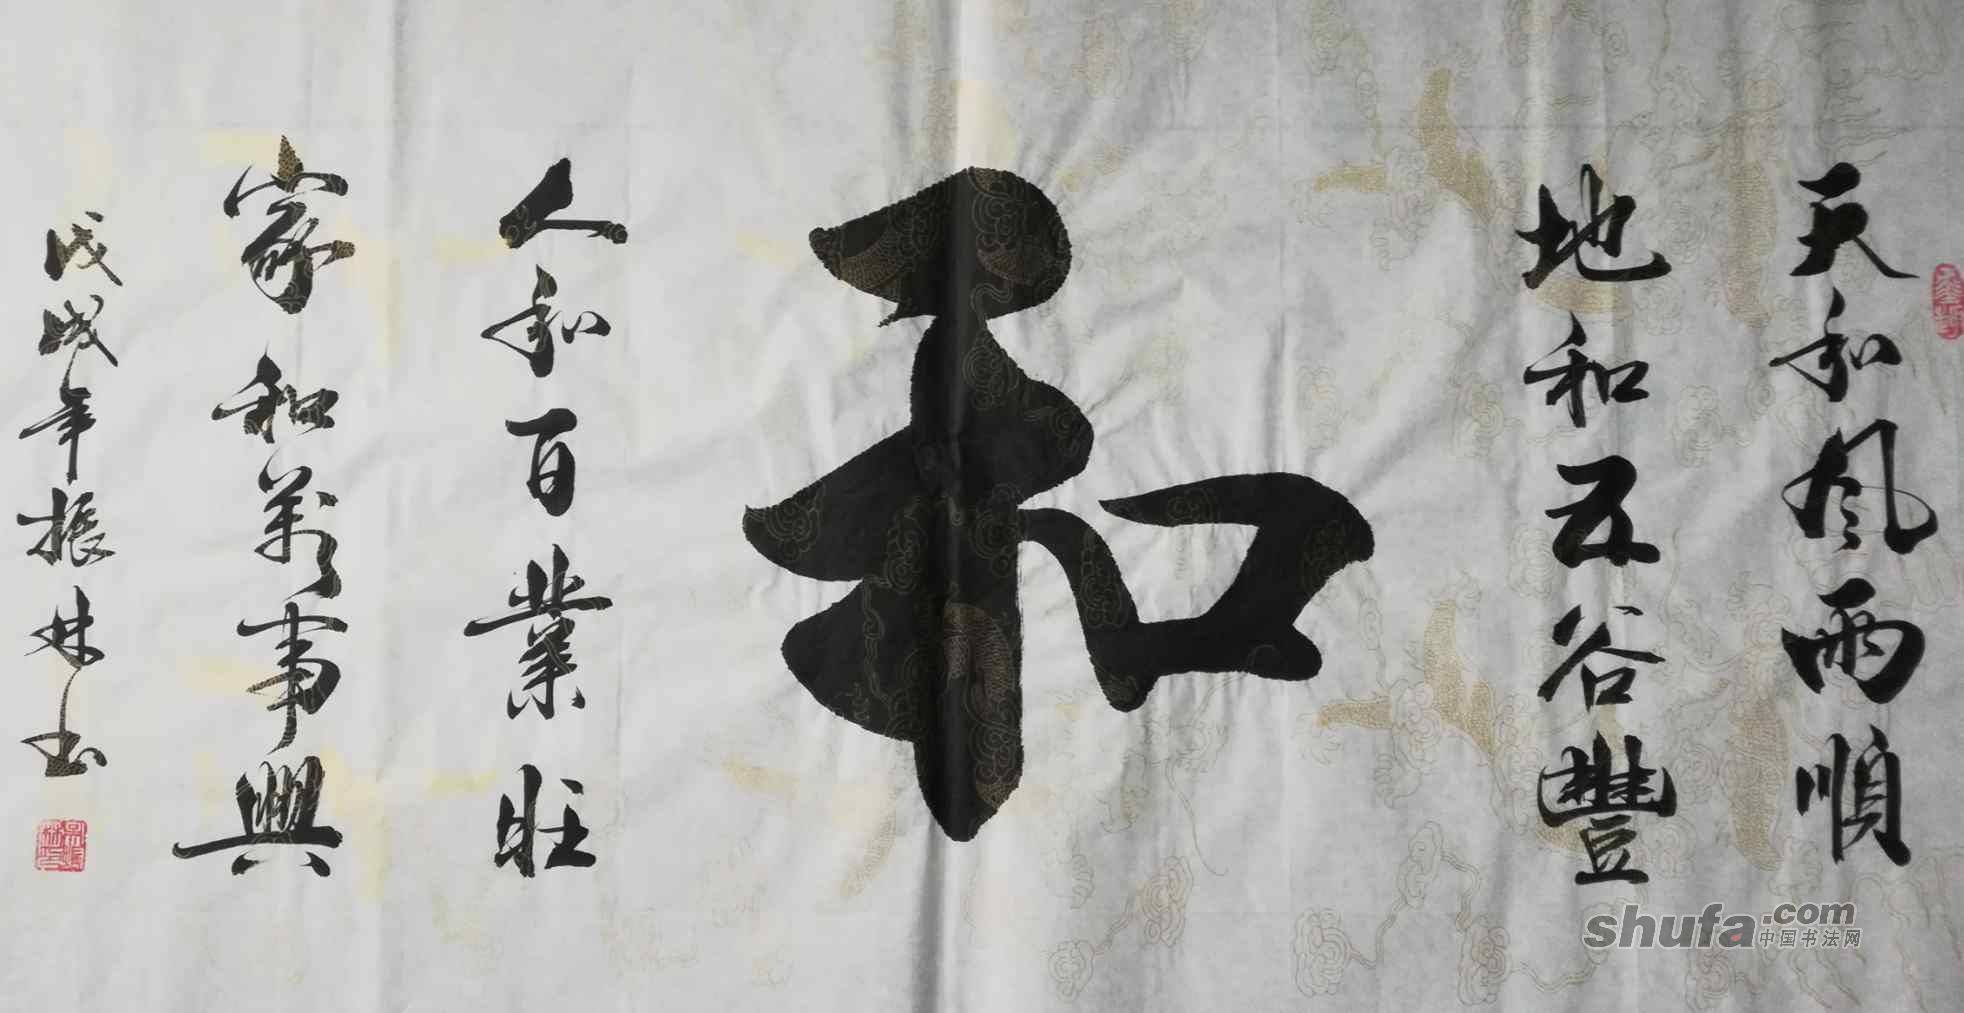 天和风雨順
地和五谷豐
和
人和百業旺
家和萬事興
戊戌年振林书
shufa.com
中国书法网